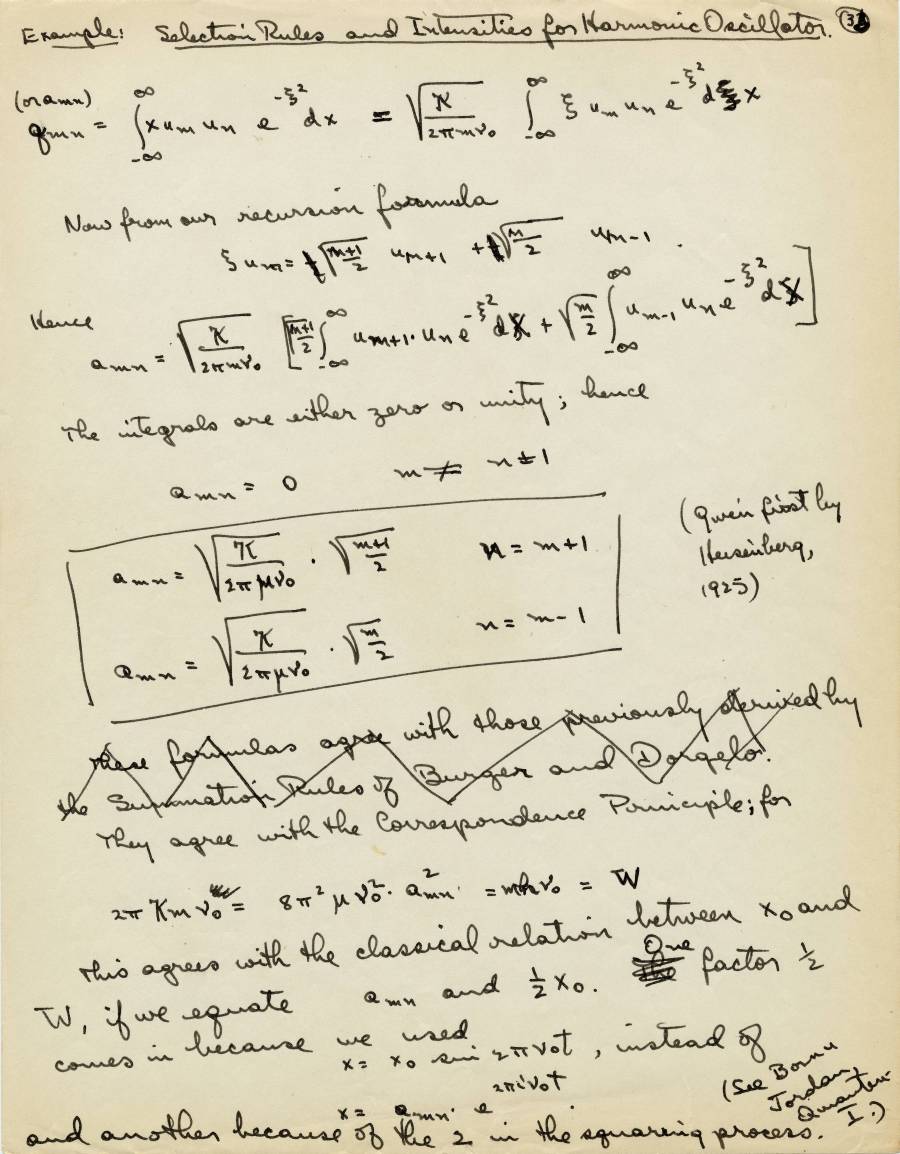 Example: Selection Rules and Intensities for Harmonic Oscillator. 33
(or amn)
qmn = ∫_{-∞}^{∞} x um un e^{-ξ²} dx = √(K/2πmν₀) ∫_{-∞}^{∞} ξ um un e^{-ξ²} dx
Now from our recursion formula
ξ um = √((m+1)/2) um+1 + √(m/2) um-1 .
Hence
amn = √(K/2πmν₀) [√((m+1)/2) ∫_{-∞}^{∞} um+1 · un e^{-ξ²} dξ + √(m/2) ∫_{-∞}^{∞} um-1 un e^{-ξ²} dξ]
The integrals are either zero or unity; hence
amn = 0 m ≠ n±1
amn = √(K/2πμν₀) · √((m+1)/2) n = m+1
(given first by
Heisenberg,
1925)
amn = √(K/2πμν₀) · √(m/2) n = m-1
These formulas agree with those previously derived by
the Summation Rules of Burger and Dorgelo.
They agree with the Correspondence Principle; for
2π K m ν₀ = 8π² μ ν₀² · a²mn = mhν₀ = W
This agrees with the classical relation between x₀ and
W, if we equate amn and ½ x₀. One factor ½
comes in because we used
x = x₀ sin 2πν₀t, instead of
x = amn e^{2πiν₀t}
and another because of the 2 in the squaring process.
(See Born u
Jordan,
Quanten-
I.)